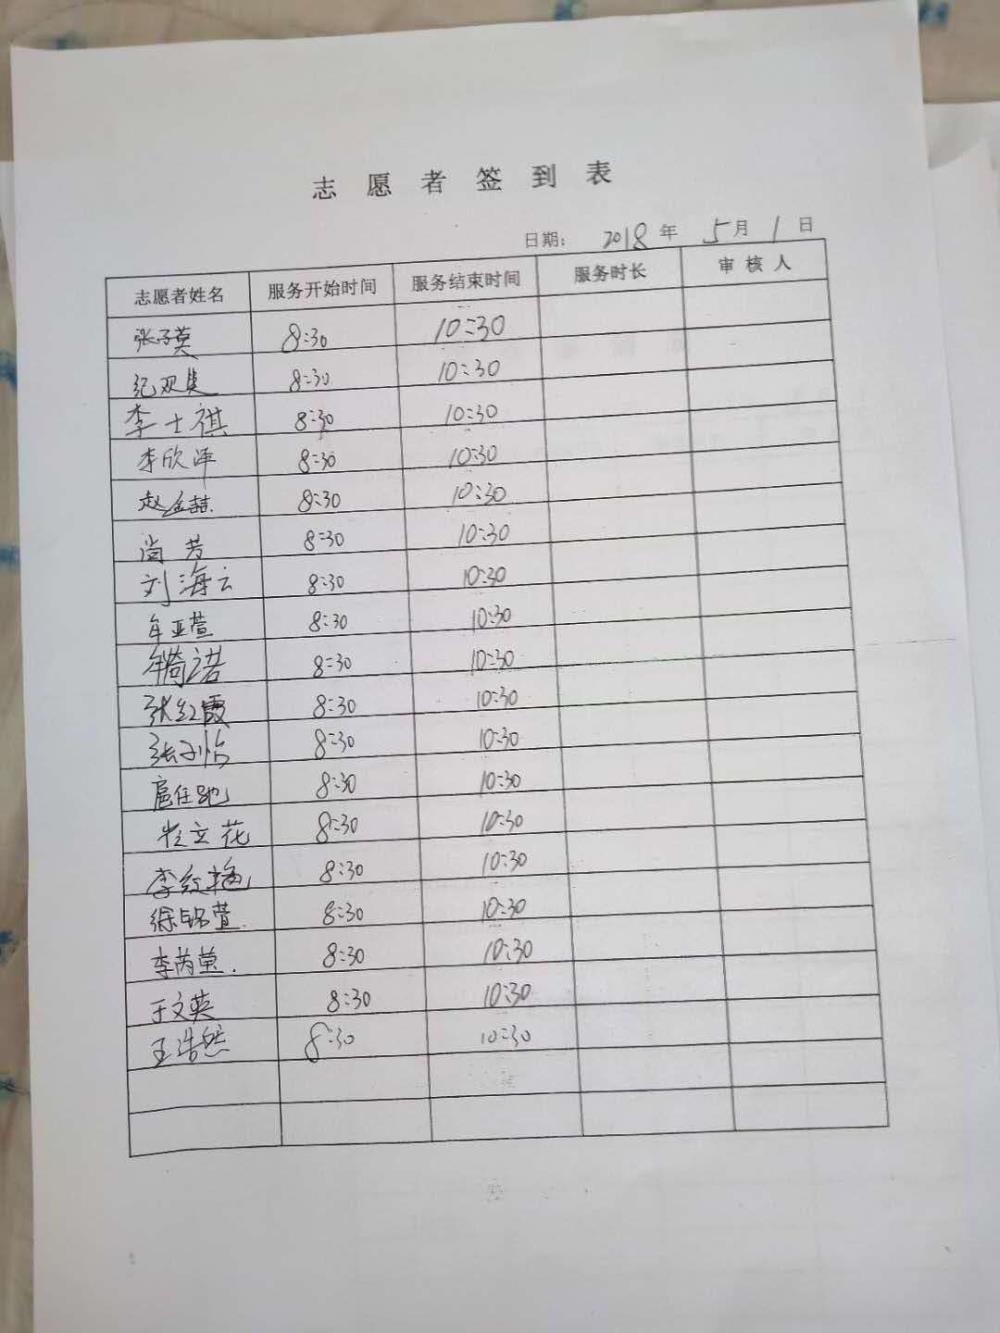 志愿者签到表
日期: 2018年5月1日
志愿者姓名 服务开始时间 服务结束时间 服务时长 审核人
张子莫 8:30 10:30
纪双 8:30 10:30
李士祺 8:30 10:30
李欣泽 8:30 10:30
赵金喆 8:30 10:30
尚芳 8:30 10:30
刘海云 8:30 10:30
牟亚萱 8:30 10:30
牟倚诺 8:30 10:30
张红霞 8:30 10:30
张子怡 8:30 10:30
扈任 8:30 10:30
立花 8:30 10:30
李红艳 8:30 10:30
徐铭萱 8:30 10:30
李芮萱 8:30 10:30
于文英 8:30 10:30
王浩然 8:30 10:30